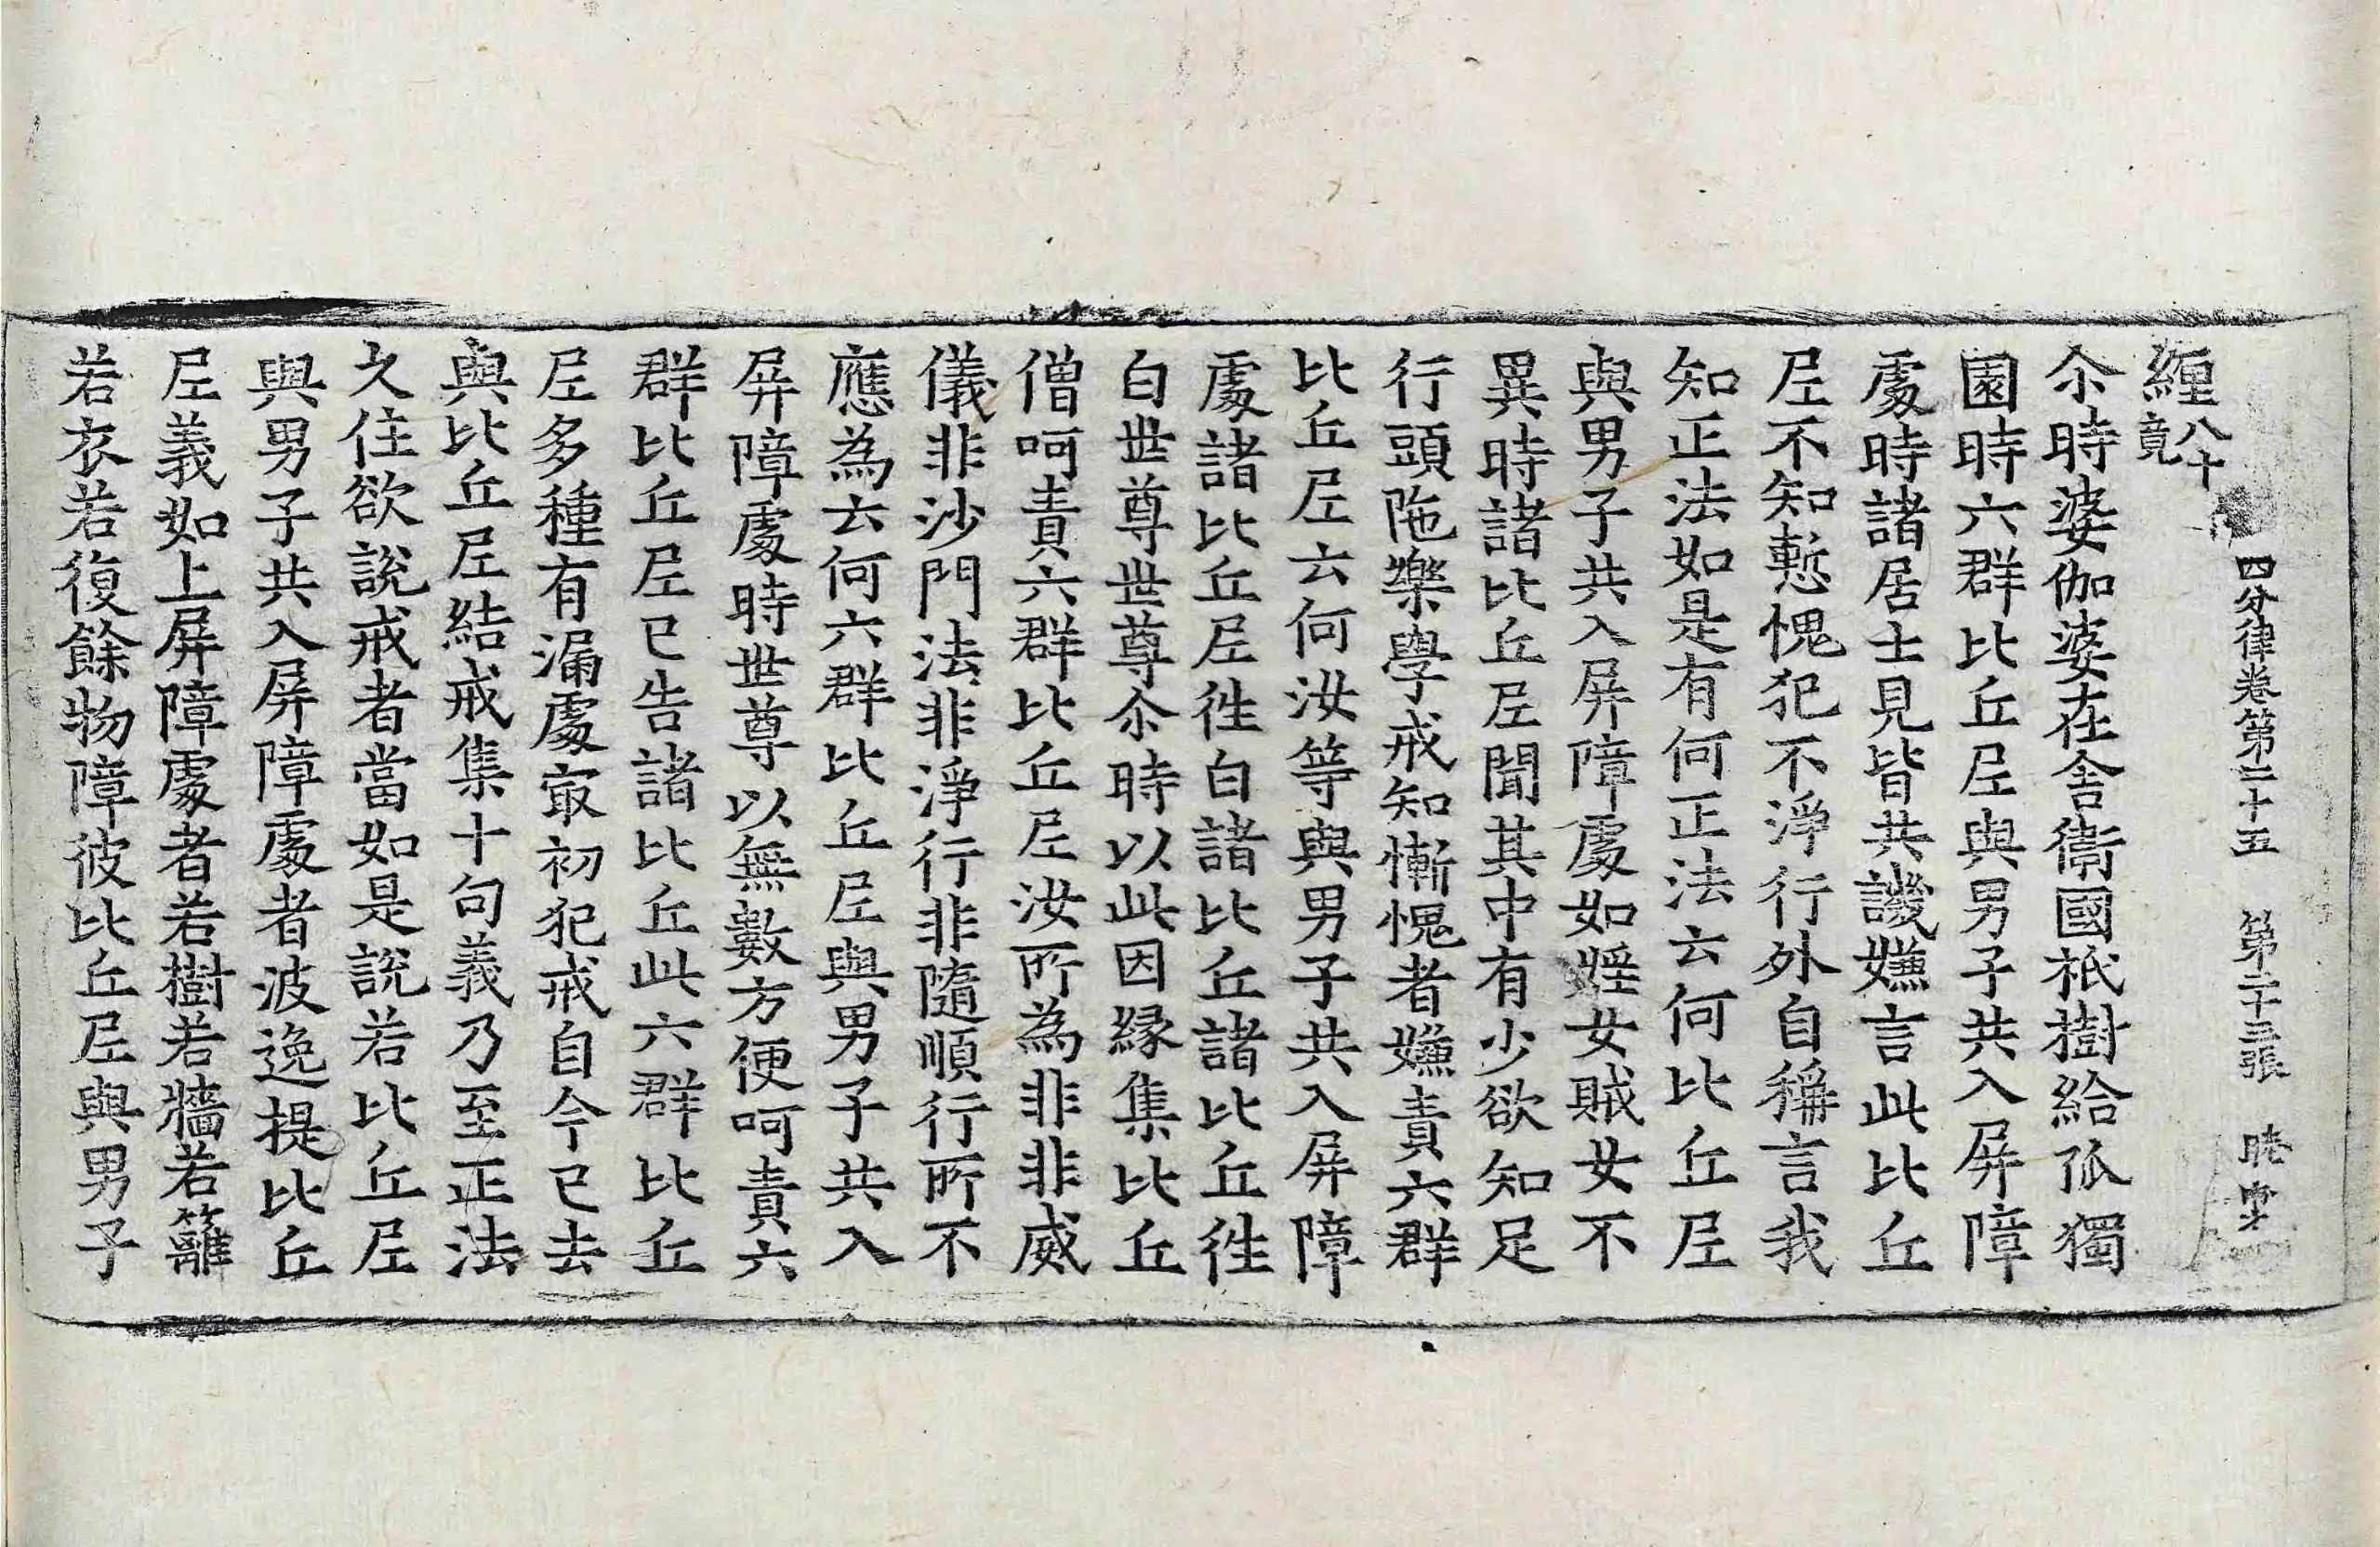 四分律卷第二十五　第二十三張
緾八十竟
尒時婆伽婆在舍衛國祇樹給孤獨
園時六群比丘尼與男子共入屏障
處時諸居士見皆共譏嫌言此比丘
尼不知慙愧犯不淨行外自稱言我
知正法如是有何正法云何比丘尼
與男子共入屏障處如婬女賊女不
異時諸比丘尼聞其中有少欲知足
行頭陁樂學戒知慚愧者嫌責六群
比丘尼云何汝等與男子共入屏障
處諸比丘尼徃白諸比丘諸比丘徃
白世尊世尊尒時以此因緣集比丘
僧呵責六群比丘尼汝所為非非威
儀非沙門法非淨行非隨順行所不
應為云何六群比丘尼與男子共入
屏障處時世尊以無數方便呵責六
群比丘尼已告諸比丘此六群比丘
尼多種有漏處㝡初犯戒自今已去
與比丘尼結戒集十句義乃至正法
久住欲說戒者當如是說若比丘尼
與男子共入屏障處者波逸提比丘
尼義如上屏障處者若樹若牆若籬
若衣若復餘物障彼比丘尼與男子